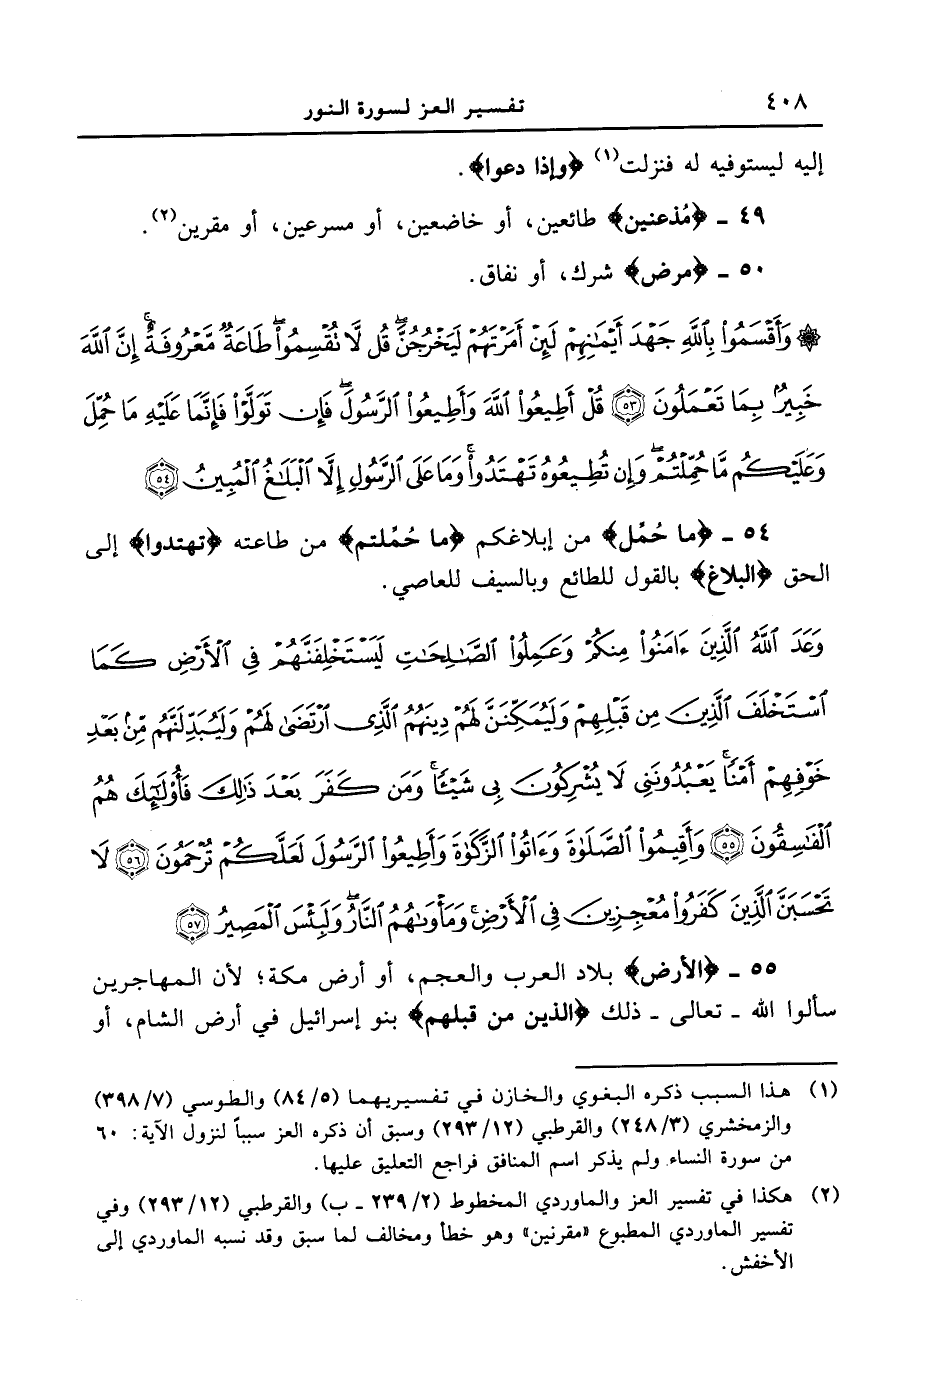 ٤٠٨ تفسير العز لسورة النور
إليه ليستوفيه له فنزلت(١) ﴿وإذا دعوا﴾.
٤٩ ـ ﴿مُذعنين﴾ طائعين، أو خاضعين، أو مسرعين، أو مقرين(٢).
٥٠ ـ ﴿مرض﴾ شرك، أو نفاق.
۞ وَأَقْسَمُوا۟ بِٱللَّهِ جَهْدَ أَيْمَٰنِهِمْ لَئِنْ أَمَرْتَهُمْ لَيَخْرُجُنَّ ۖ قُل لَّا تُقْسِمُوا۟ ۖ طَاعَةٌ مَّعْرُوفَةٌ ۚ إِنَّ ٱللَّهَ
خَبِيرٌۢ بِمَا تَعْمَلُونَ ٥٣ قُلْ أَطِيعُوا۟ ٱللَّهَ وَأَطِيعُوا۟ ٱلرَّسُولَ ۖ فَإِن تَوَلَّوْا۟ فَإِنَّمَا عَلَيْهِ مَا حُمِّلَ
وَعَلَيْكُم مَّا حُمِّلْتُمْ ۖ وَإِن تُطِيعُوهُ تَهْتَدُوا۟ ۚ وَمَا عَلَى ٱلرَّسُولِ إِلَّا ٱلْبَلَٰغُ ٱلْمُبِينُ ٥٤
٥٤ ـ ﴿ما حُمِّل﴾ من إبلاغكم ﴿ما حُمِّلتم﴾ من طاعته ﴿تهتدوا﴾ إلى
الحق ﴿البلاغ﴾ بالقول للطائع وبالسيف للعاصي.
وَعَدَ ٱللَّهُ ٱلَّذِينَ ءَامَنُوا۟ مِنكُمْ وَعَمِلُوا۟ ٱلصَّٰلِحَٰتِ لَيَسْتَخْلِفَنَّهُمْ فِى ٱلْأَرْضِ كَمَا
ٱسْتَخْلَفَ ٱلَّذِينَ مِن قَبْلِهِمْ وَلَيُمَكِّنَنَّ لَهُمْ دِينَهُمُ ٱلَّذِى ٱرْتَضَىٰ لَهُمْ وَلَيُبَدِّلَنَّهُم مِّنۢ بَعْدِ
خَوْفِهِمْ أَمْنًا ۚ يَعْبُدُونَنِى لَا يُشْرِكُونَ بِى شَيْـًٔا ۚ وَمَن كَفَرَ بَعْدَ ذَٰلِكَ فَأُو۟لَٰٓئِكَ هُمُ
ٱلْفَٰسِقُونَ ٥٥ وَأَقِيمُوا۟ ٱلصَّلَوٰةَ وَءَاتُوا۟ ٱلزَّكَوٰةَ وَأَطِيعُوا۟ ٱلرَّسُولَ لَعَلَّكُمْ تُرْحَمُونَ ٥٦ لَا
تَحْسَبَنَّ ٱلَّذِينَ كَفَرُوا۟ مُعْجِزِينَ فِى ٱلْأَرْضِ ۚ وَمَأْوَىٰهُمُ ٱلنَّارُ ۖ وَلَبِئْسَ ٱلْمَصِيرُ ٥٧
٥٥ ـ ﴿الأرض﴾ بلاد العرب والعجم، أو أرض مكة؛ لأن المهاجرين
سألوا الله ـ تعالى ـ ذلك ﴿الذين من قبلهم﴾ بنو إسرائيل في أرض الشام، أو
(١) هذا السبب ذكره البغوي والخازن في تفسيريهما (٨٤/٥) والطوسي (٣٩٨/٧)
والزمخشري (٢٤٨/٣) والقرطبي (٢٩٣/١٢) وسبق أن ذكره العز سبباً لنزول الآية: ٦٠
من سورة النساء ولم يذكر اسم المنافق فراجع التعليق عليها.
(٢) هكذا في تفسير العز والماوردي المخطوط (٢٣٩/٢ ـ ب) والقرطبي (٢٩٣/١٢) وفي
تفسير الماوردي المطبوع «مقرنين» وهو خطأ ومخالف لما سبق وقد نسبه الماوردي إلى
الأخفش.